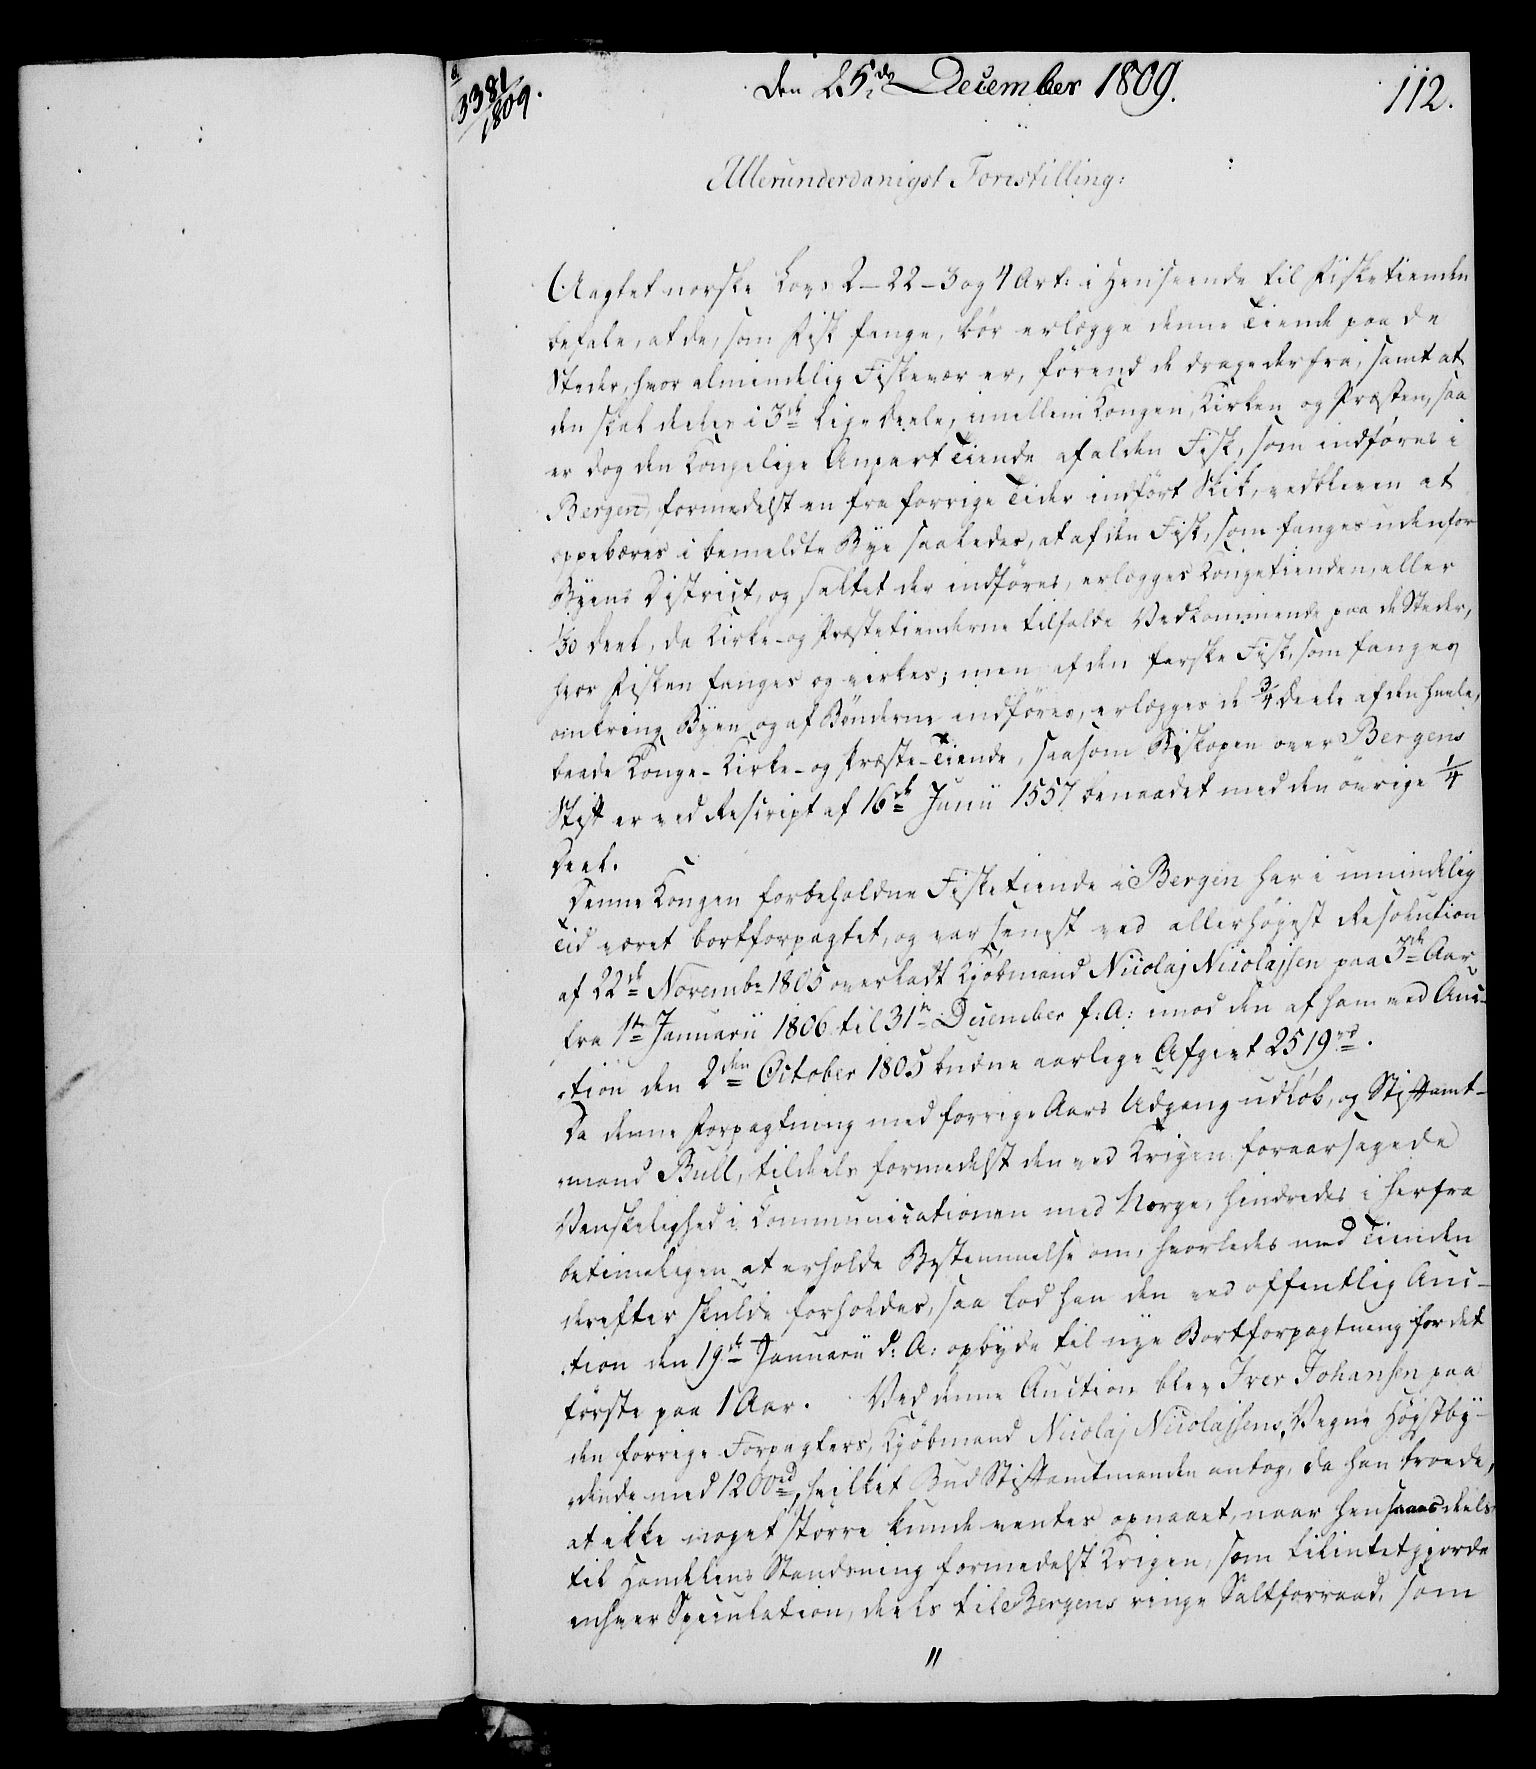 a
3381/1809.
Den 25de December 1809.
112.
Allerunderdanigst Forestilling:
Uagtet norske Lovs 2-22-3 og 4 Art: i Henseende til Fisketienden
befale, at de, som Fisk fange, bør erlægge denne Tiende paa de
Steder, hvor almindelig Fiskevær er, førend de drage derfra, samt at
den skal deeles i 3de lige deele, imellem Kongen, Kirken og Præsten, saa
er dog den Kongelige Anpart Tiende af al den Fisk, som indføres i
Bergen, formedelst en fra forrige Tider indført Skik, vedbleven at
oppebæres i bemeldte Bye saaledes, at af den Fisk, som fanges udenfor
Byens District, og saltet der indføres, erlægges Kongetienden, eller
1/30 deel, da Kirke- og Præstetienderne tilfalde Vedkommende paa de Steder,
hvor Fisken fanges og virkes; men af den ferske Fisk, som fanges
omkring Byen og af Bønderne indføres, erlægges de 3/4 deele af den heele,
baade Konge- Kirke- og Præste-Tiende, saasom Biskopen over Bergens
Stift er ved Rescript af 16de Junii 1557 benaadet med den øvrige 1/4
Deel.
Denne Kongen forbeholdne Fisketiende i Bergen har i umindelig
Tid været bortforpagtet, og var senest ved allerhøjest Resolution
af 22de Novembr 1805 overladt Kjøbmand Nicolaj Nicolajsen paa 3de Aar
fra 1te Januarii 1806 til 31te December f: A: imod den af ham ved Auc-
tion den 2den October 1805 budne aarlige Afgivt 2519 rd.
Da denne Forpagtning med forrige Aars Udgang udløb, og Stiftamt-
mand Bull, tildeels formedelst den ved Krigen foraarsagede
Vanskelighed i Communicationen med Norge, hindredes i herfra
betimeligen at erholde Bestemmelse om, hvorledes med Tienden
derefter skulde forholdes, saa lod han den ved offentlig Auc-
tion den 19de Januarii d: A: opbyde til nye Bortforpagtning for det
første paa 1 Aar. Ved denne Auction blev Iver Johansen paa
den forrige Forpagters, Kjøbmand Nicolaj Nicolajsens, Vegne Højstby-
dende med 1200 rd, hvilket Bud Stiftamtmanden antog, da han troede,
at ikke noget større kunde ventes opnaaet, naar hensaaes deels
til Handelens Standsning formedelst Krigen, som tilintetgjorde
enhver Speculation, deels til Bergens ringe Saltforraad, som